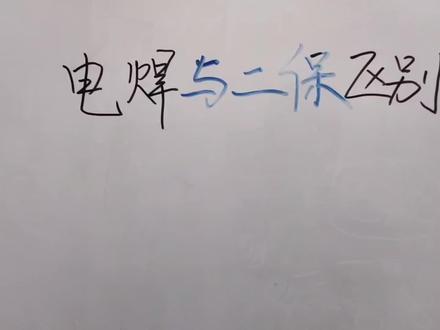 电焊与二保区别